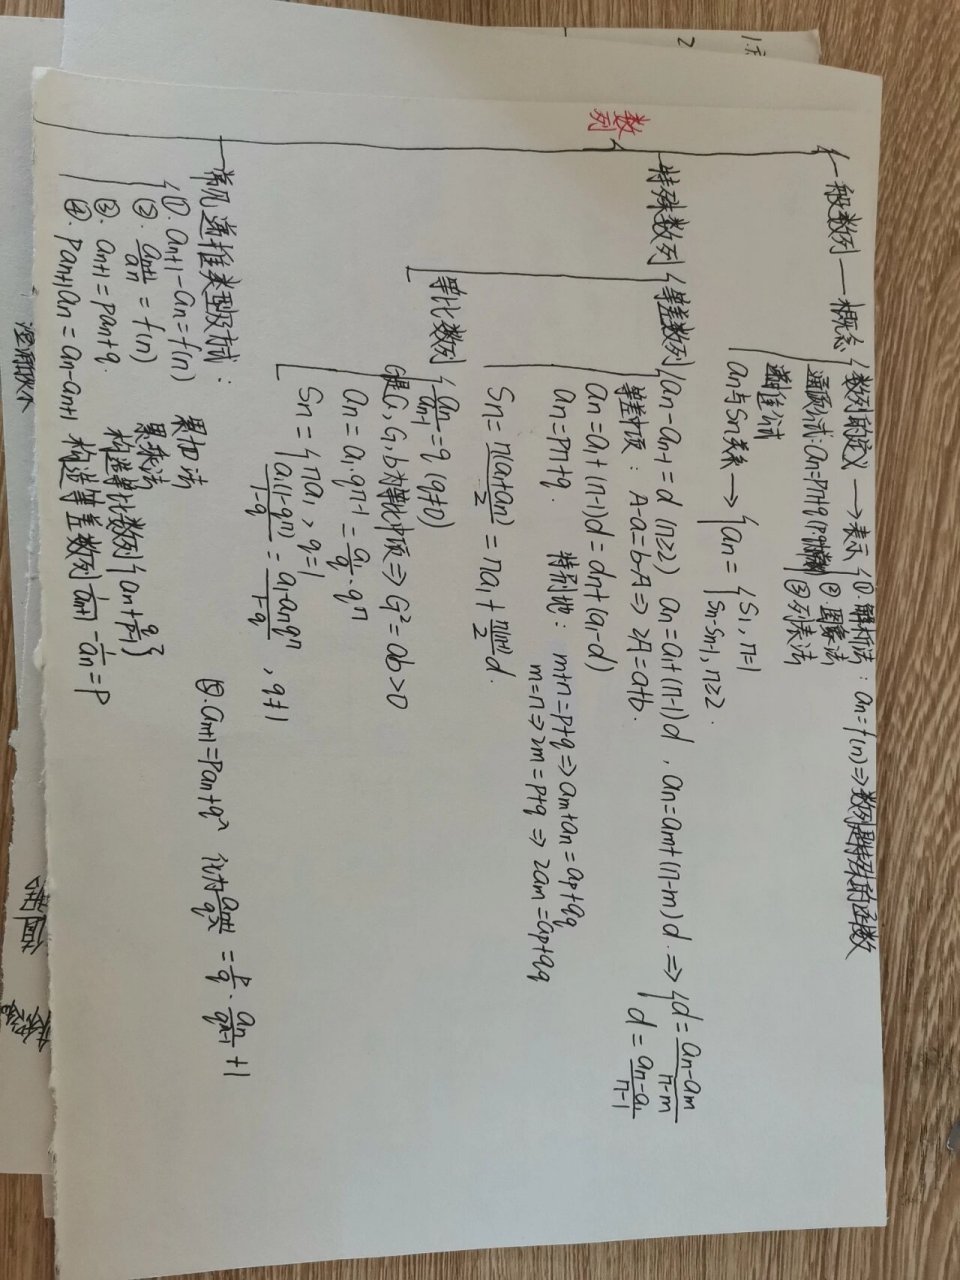 数列
一般数列——概念
数列的定义 → 表示 ①. 解析法: an=f(n)⇒数列是特殊的函数
②图象法
③列表法
通项公式: an=pn+q
递推公式
an与Sn关系 → {an = {S1, n=1
Sn-Sn-1, n≥2.
特殊数列
等差数列
an-an-1=d (n≥2) an=a1+(n-1)d, an=am+(n-m)d. ⇒ {d=an-am/n-m
d=an-a1/n-1
等差中项: A-a=b-A⇒2A=a+b.
an=a1+(n-1)d=dn+(a1-d)
an=pn+q. 特别地: m+n=p+q⇒am+an=ap+aq
m=n⇒2m=p+q⇒2am=ap+aq
Sn=n(a1+an)/2=na1+n(n-1)/2 d.
等比数列
an/an-1=q (q≠0)
G是G, G, b为等比中项⇒G²=ab>0
an=a1·qn-1=a1/q·qn
Sn={na1, q=1
a1(1-qn)/1-q=a1-anqn/1-q, q≠1
常见递推类型及方式:
①. an+1-an=f(n) 累加法
②. an+1/an=f(n) 累乘法
③. an+1=pan+q. 构造等比数列{an+q/p-1}
④. pan+1an=an-an+1 构造等差数列 1/an+1-1/an=p
an+1=pan+qn 化为 an+1/qn=p/q·an/qn-1+1